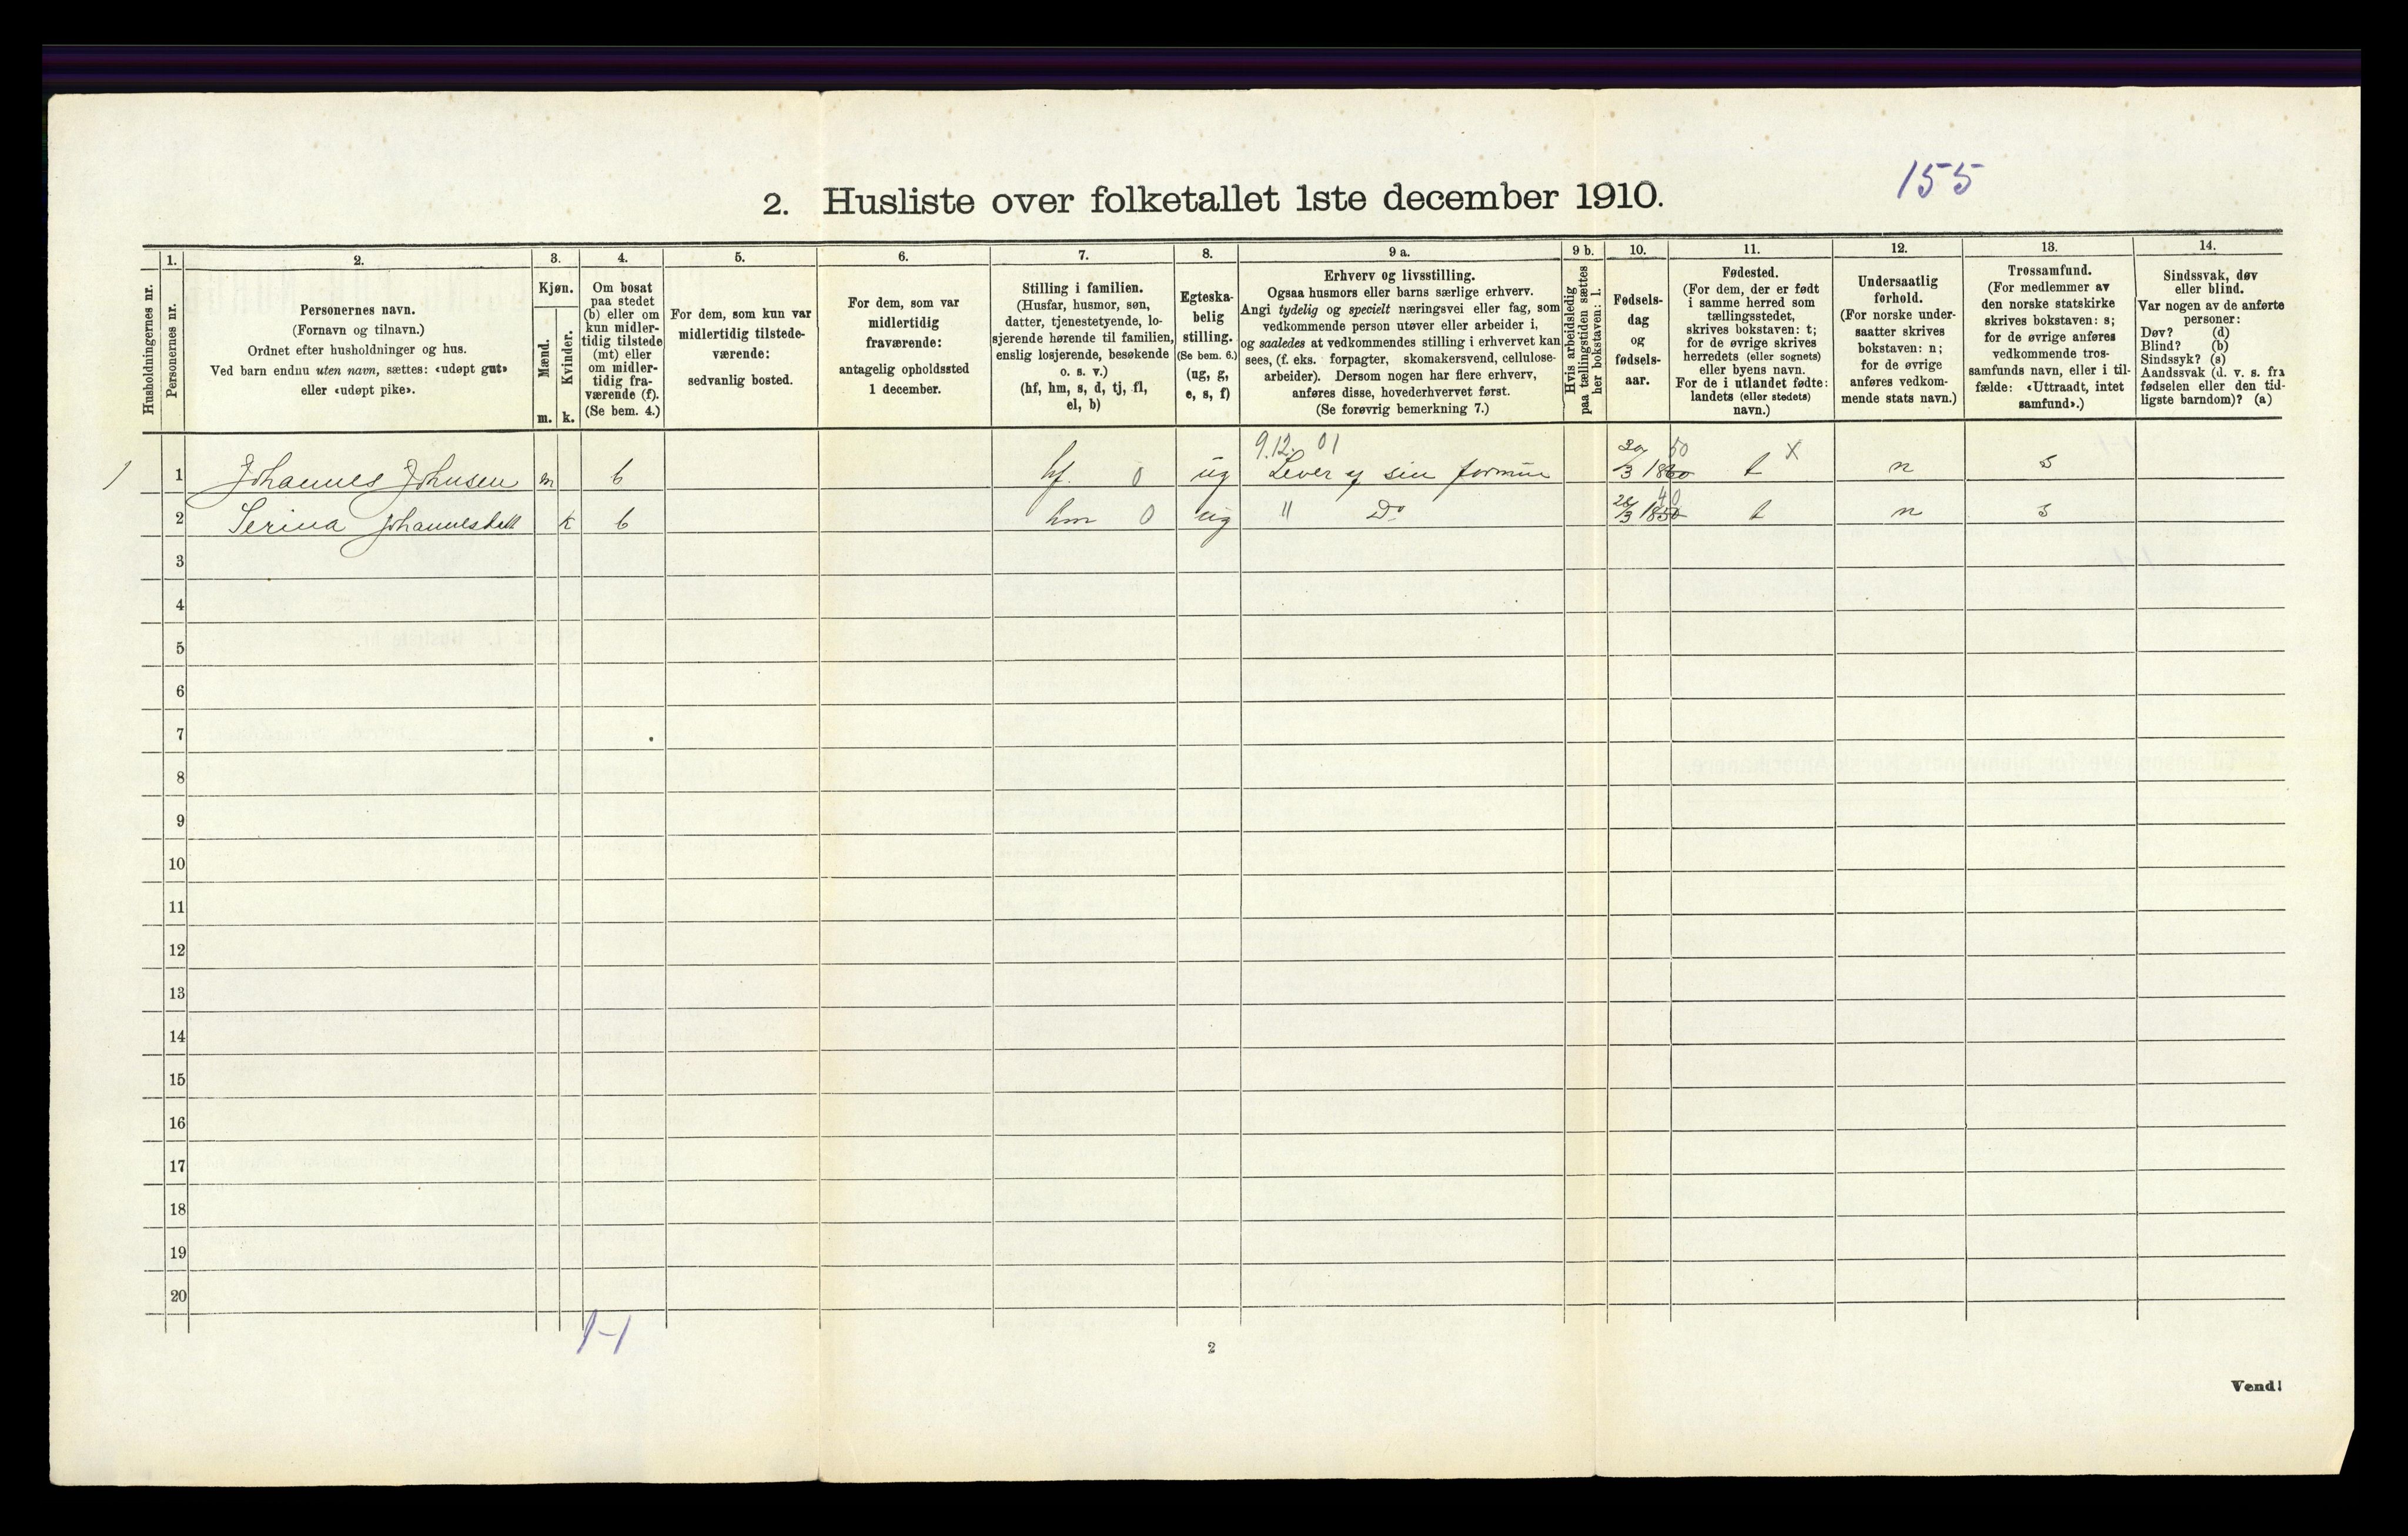 155
2. Husliste over folketallet 1ste december 1910.
Husholdningernes nr.
1.
Personernes nr.
2.
Personernes navn.
(Fornavn og tilnavn.)
Ordnet efter husholdninger og hus.
Ved barn endnu uten navn, sættes: «udøpt gut»
eller «udøpt pike».
3.
Kjøn.
Mænd.
Kvinder.
m. k.
4.
Om bosat
paa stedet
(b) eller om
kun midler-
tidig tilstede
(mt) eller
om midler-
tidig fra-
værende (f).
(Se bem. 4.)
5.
For dem, som kun var
midlertidig tilstede-
værende:
sedvanlig bosted.
6.
For dem, som var
midlertidig
fraværende:
antagelig opholdssted
1 december.
7.
Stilling i familien.
(Husfar, husmor, søn,
datter, tjenestetyende, lo-
sjerende hørende til familien,
enslig losjerende, besøkende
o. s. v.)
(hf, hm, s, d, tj, fl,
el, b)
8.
Egteska-
belig
stilling.
(Se bem. 6.)
(ug, g,
e, s, f)
9 a.
Erhverv og livsstilling.
Ogsaa husmors eller barns særlige erhverv.
Angi tydelig og specielt næringsvei eller fag, som
vedkommende person utøver eller arbeider i,
og saaledes at vedkommendes stilling i erhvervet kan
sees, (f. eks. forpagter, skomakersvend, cellulose-
arbeider). Dersom nogen har flere erhverv,
anføres disse, hovederhvervet først.
(Se forøvrig bemerkning 7.)
9 b.
Hvis arbeidsledig
paa tællingstiden sættes
her bokstaven: l.
10.
Fødsels-
dag
og
fødsels-
aar.
11.
Fødested.
(For dem, der er født
i samme herred som
tællingsstedet,
skrives bokstaven: t;
for de øvrige skrives
herredets (eller sognets)
eller byens navn.
For de i utlandet fødte:
landets (eller stedets)
navn.)
12.
Undersaatlig
forhold.
(For norske under-
saatter skrives
bokstaven: n;
for de øvrige
anføres vedkom-
mende stats navn.)
13.
Trossamfund.
(For medlemmer av
den norske statskirke
skrives bokstaven: s;
for de øvrige anføres
vedkommende tros-
samfunds navn, eller i til-
fælde: «Uttraadt, intet
samfund».)
14.
Sindssvak, døv
eller blind.
Var nogen av de anførte
personer:
Døv? (d)
Blind? (b)
Sindssyk? (s)
Aandssvak (d. v. s. fra
fødselen eller den tid-
ligste barndom)? (a)
9.12. 01
50
1 1 Johannes Johnsen m b hf. 0 ug Lever af sin formue 30/3 1860 t X n s
40
2 Serina Johannesdatt k b hm 0 ug " Do 28/3 1850 t n s
3
4
5
6
7
8
9
10
11
12
13
14
15
16
17
18
19
20
1-1
2
Vend!